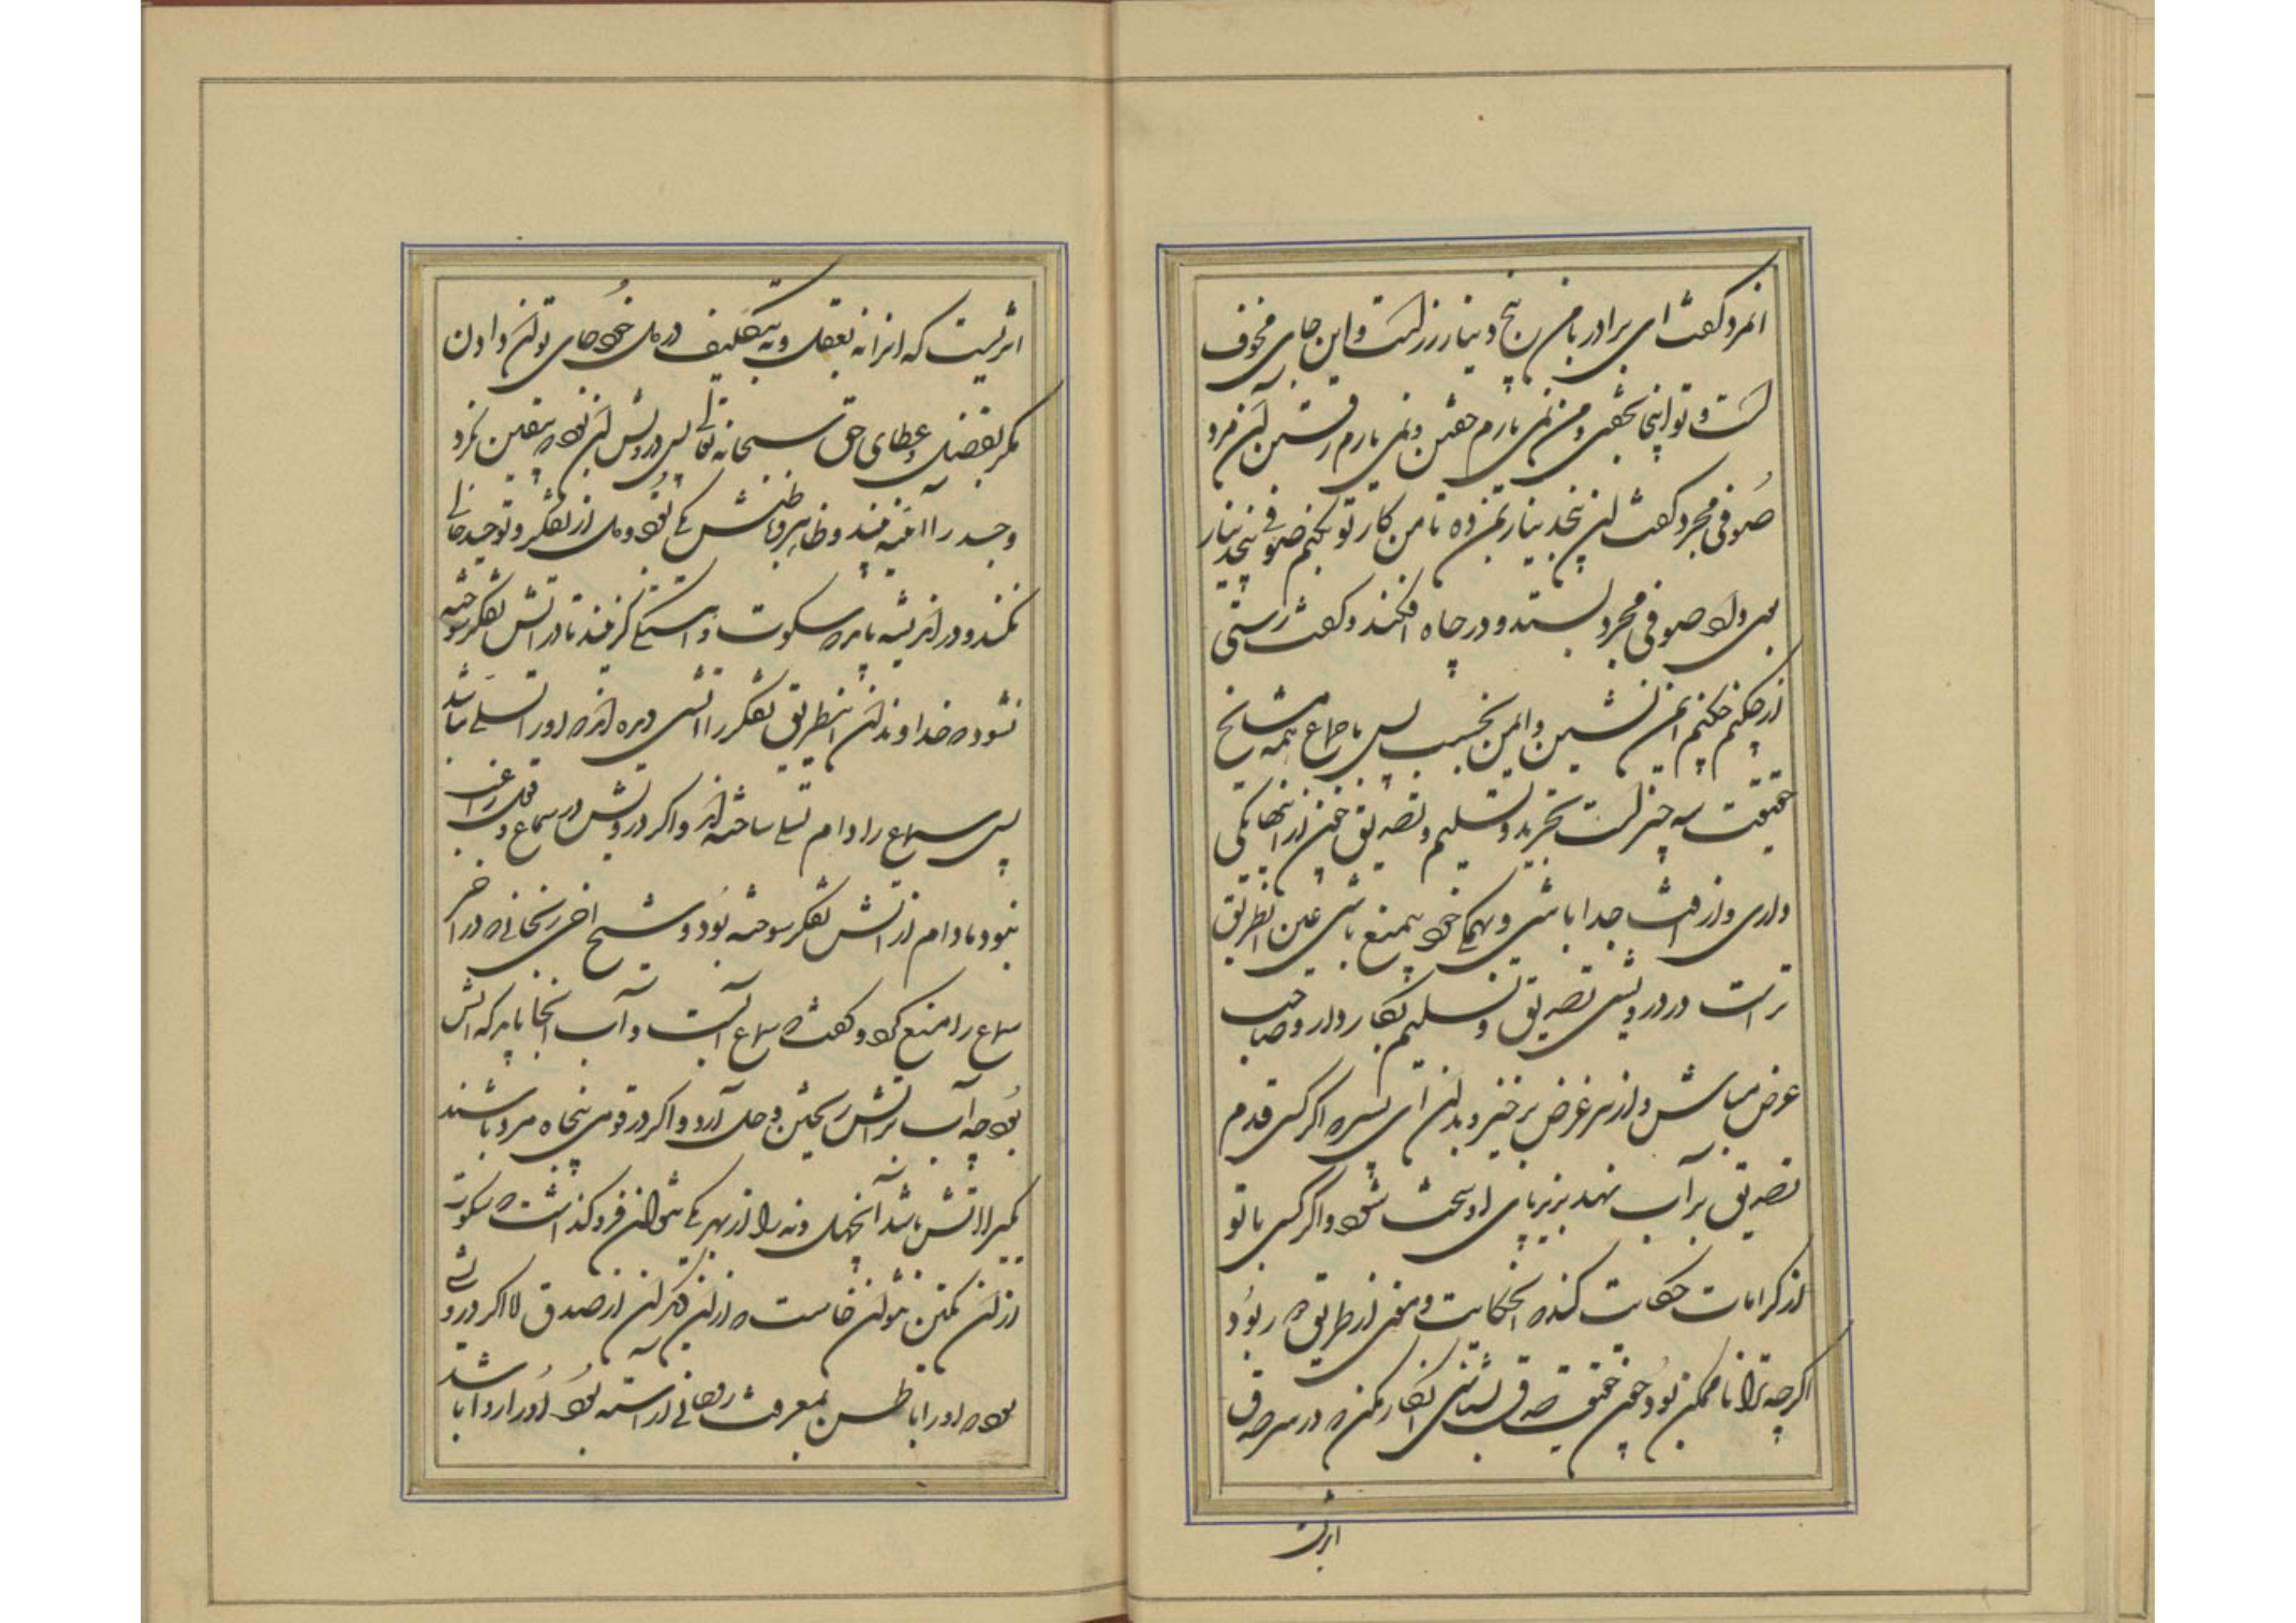 انمرد گفت ای برادر با من پنج دینار زر است و این جای مخوف
است و تو اینجا بخفتی و من نمی یارم خفتن و نمی یارم رفتن آن مرد
صوفی مجرد گفت این پنجدینار بمن ده تا من کار تو بکنم صوفی پنجدینار
بوی داد صوفی مجرد بستد و در چاه افکند و گفت رستی
از چکنم چکنم ایمن نشین و ایمن بخسب پس باجماع همه مشایخ
حقیقت سه چیز است تجرید و تسلیم و تصدیق چون از اینها یکی
داری و از آفت جدا باشی و بهمگی خود ممنع باشی عین انطریق
تراست در درویشی تصدیق و تسلیم بکار دار و صاحب
غرض مباش و از سر غرض برخیز و بدان ای پسر که اگر کسی قدم
تصدیق بر آب نهد بزیر پای او سخت شود و اگر کسی با تو
از کرامات حکایت کند که انحکایت از طریق که ربود
اگرچه ترا ناممکن بود چون حقیقت صدق بشناسی انکار مکن که در سر صدق
اثریست که انرا نه بعقل و نه بتکلیف در دل خود جای توان دادن
مگر بفضل و عطای حق سبحانه تعالی پس درویش آن بود که بیقین نگرد
وجد را آفت نبیند و ظاهر و باطنش یکی بود و دل از تفکر و توحید خالی
نکند و در اندیشه پاره سکوت و آهستگی گزیند تا در آتش تفکر سوخته
نشود که خداوندان اینطریق تفکر را آتشی دیده اند که او را تسلی نباشد
پس سماع را دام تسلی ساخته اند و اگر درویش در سماع و قول راغب
نبود مادام از آتش تفکر سوخته بود و شیخ اخی زنجانی که در آخر
سماع را منع کرد و گفت که سماع آبست و آب انجا باید که آتش
بود چه آب بر آتش ریختن وحل آرد و اگر در قومی پنجاه مرد باشند
یکمرد با آتش باشد آن چهل و نه را از بهر یکی نتوان فروگذاشت که سکوت
از آن یکتن نتوان خاست که از آن دیگران از صدق لا اگر درویشی
بود که او را باطن بمعرفت روحانی آراسته بود او را روا باشد